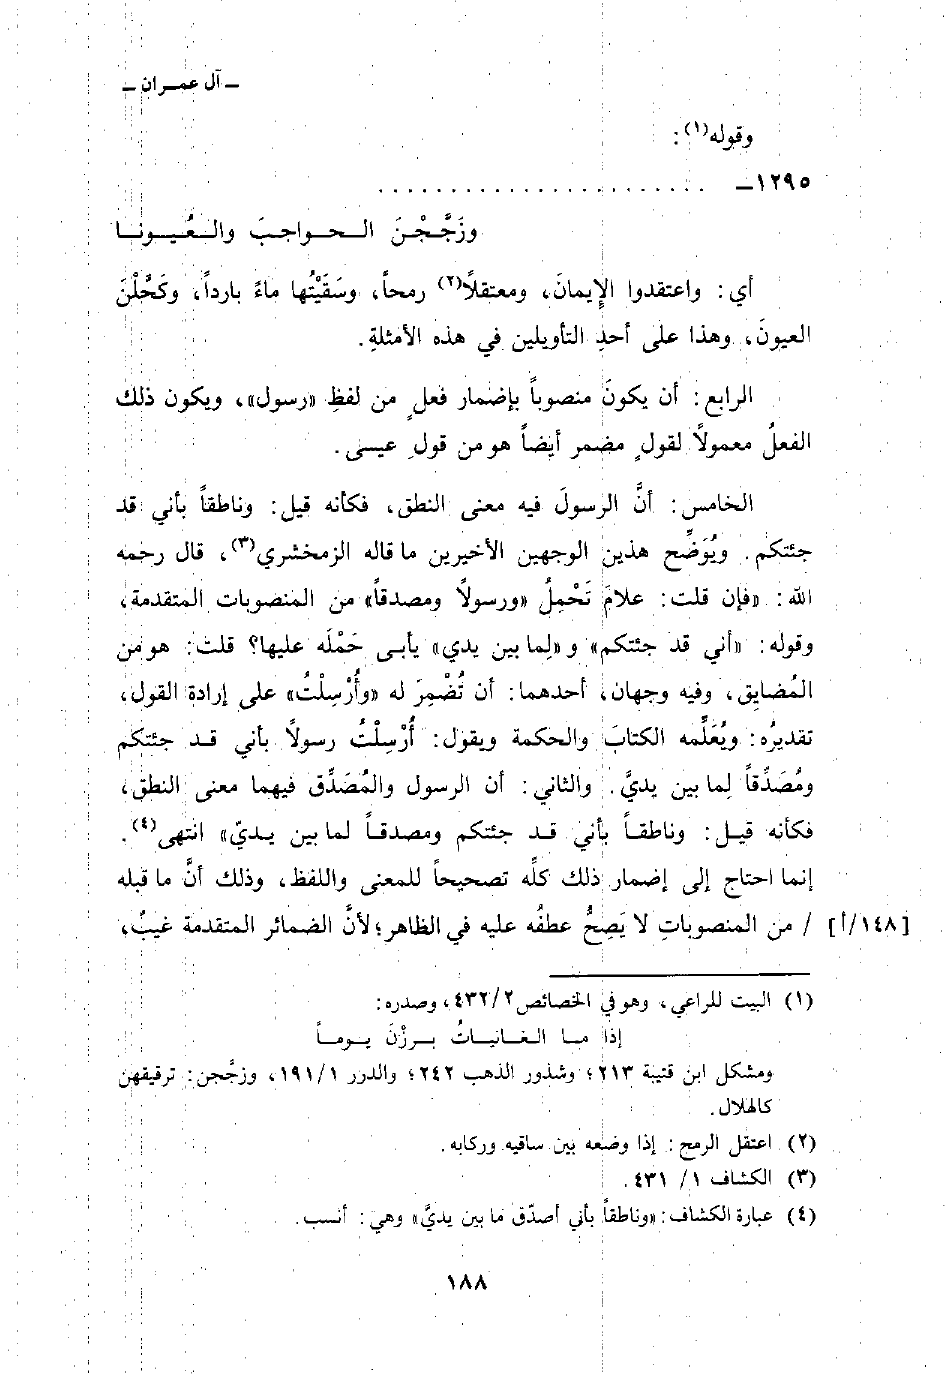 ـ آل عمـران ـ
وقوله(١):
١٢٩٥ـ . . . . . . . . . . . . . . . . . . . . . . .
وزَجَّـجْـنَ الـحـواجـبَ والـعُـيـونـا
أي: واعتقدوا الإِيمانَ، ومعتقلاً(٢) رمحاً، وسَقَيْتُها ماءً بارداً، وكَحَّلْنَ
العيونَ، وهذا على أحدِ التأويلين في هذه الأمثلةِ.
الرابع: أن يكونَ منصوباً بإضمار فعلٍ من لفظِ «رسول»، ويكون ذلك
الفعلُ معمولاً لقولٍ مضمر أيضاً هو من قولِ عيسى.
الخامس: أنَّ الرسولَ فيه معنى النطق، فكأنه قيل: وناطقاً بأني قد
جئتكم. ويُوَضِّح هذين الوجهين الأخيرين ما قاله الزمخشري(٣)، قال رحمه
الله: «فإن قلت: علامَ تَحْمِلُ «ورسولاً ومصدقاً» من المنصوبات المتقدمة،
وقوله: «أني قد جئتكم» و «لِما بين يدي» يأبى حَمْلَه عليها؟ قلت: هو من
المُضايق، وفيه وجهان، أحدهما: أن تُضْمِرَ له «وأُرْسِلْتُ» على إرادة القول،
تقديرُه: ويُعَلِّمه الكتابَ والحكمة ويقول: أُرْسِلْتُ رسولاً بأني قـد جئتكم
ومُصَدِّقاً لِما بين يديَّ. والثاني: أن الرسول والمُصَدِّق فيهما معنى النطق،
فكأنه قيـل: وناطقـاً بأني قـد جئتكم ومصدقـاً لما بين يـديّ» انتهى(٤).
إنما احتاج إلى إضمار ذلك كلَّه تصحيحاً للمعنى واللفظ، وذلك أنَّ ما قبله
[١٤٨/أ] / من المنصوباتِ لا يَصِحُّ عطفُه عليه في الظاهر؛ لأنَّ الضمائر المتقدمة غيبٌ،
(١) البيت للراعي، وهو في الخصائص ٤٣٢/٢، وصدره:
إذا مـا الـغـانيـاتُ بـرزْنَ يـومـاً
ومشكل ابن قتيبة ٢١٣؛ وشذور الذهب ٢٤٢؛ والدرر ١٩١/١، وزجَّجن: ترقيقهن
كالهلال.
(٢) اعتقل الرمح: إذا وضعه بين ساقيه وركابه.
(٣) الكشاف ١/ ٤٣١.
(٤) عبارة الكشاف: «وناطقاً بأني أصدّق ما بين يديَّ» وهي: أنسب.
١٨٨